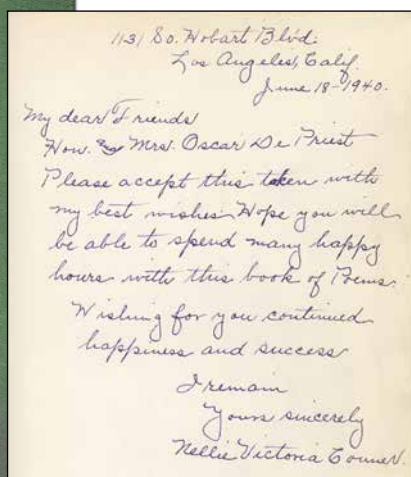 1131 So. Hobart Blvd.
Los Angeles, Calif.
June 18-1940.
My dear Friends
Hon. & Mrs. Oscar De Priest
Please accept this token with
my best wishes. Hope you will
be able to spend many happy
hours with this book of Poems.
Wishing for you continued
happiness and success
I remain
Yours sincerely
Nellie Victoria Conner.